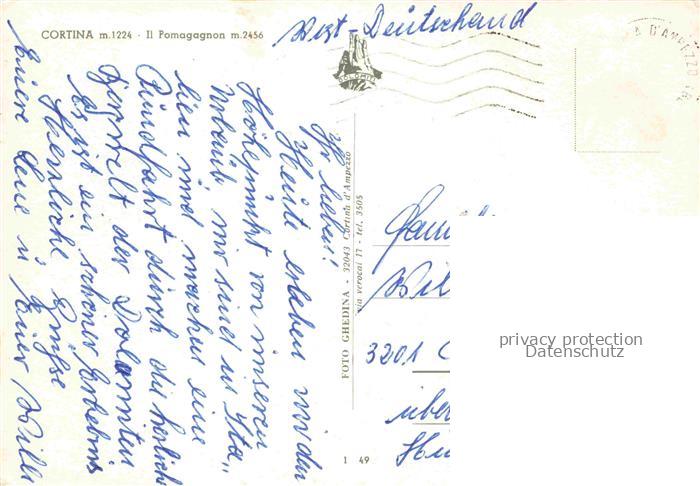 CORTINA m.1224 - Il Pomagagnon m.2456
West-Deutschland
DOLOMITI
A D'AMPEZZO
Ihr lieben!
Heute erleben wir den
Höhepunkt von unseren
Urlaub wir sind in Ita„
lien und machen eine
Rundfahrt durch die herlich
Bergwelt der Dolomiten
Es ist ein schönes Erlebnis
Herzliche Grüße
Eure Lene u Euer Willi
FOTO GHEDINA - 32043 Cortina d'Ampezzo
via verocai 17 - tel. 3505
Fam
Wil
3201
über
Hi
1 49
privacy protection
Datenschutz